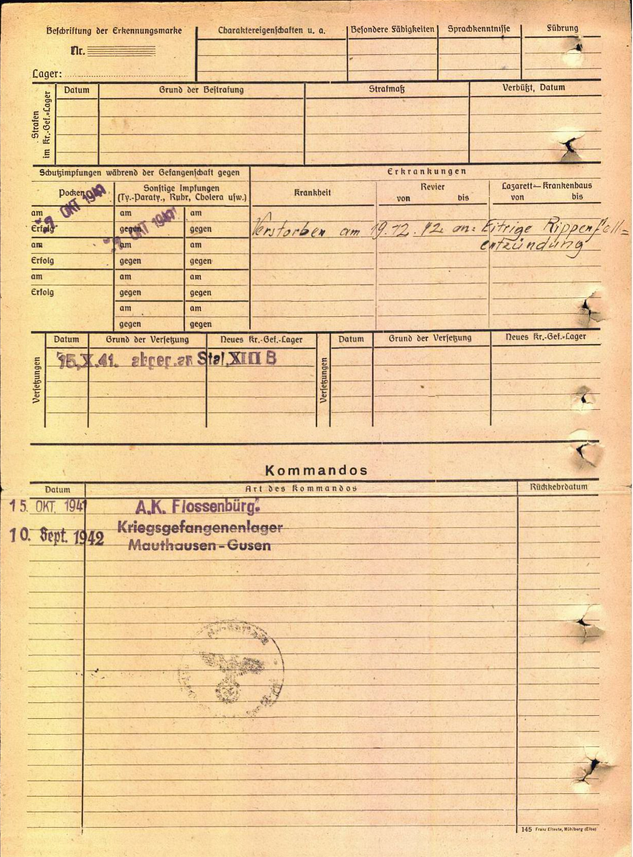 Beschriftung der Erkennungsmarke
Nr.
Lager:
Charaktereigenschaften u. a.
Besondere Fähigkeiten
Sprachkenntnisse
Führung
Strafen
im Kr.-Gef.-Lager
Datum
Grund der Bestrafung
Strafmaß
Verbüßt, Datum
Schutzimpfungen während der Gefangenschaft gegen
Erkrankungen
Pocken
Sonstige Impfungen
(Ty.-Paraty., Ruhr, Cholera usw.)
Krankheit
Revier
von bis
Lazarett—Krankenhaus
von bis
OKT 1941
OKT 1941
am am am
Erfolg gegen gegen
am am am
Erfolg gegen gegen
am am am
Erfolg gegen gegen
am am
gegen gegen
Verstorben am 19.12.42 an: Eitrige Rippenfell=
entzündung
Versetzungen
Datum
Grund der Versetzung
Neues Kr.-Gef.-Lager
Versetzungen
Datum
Grund der Versetzung
Neues Kr.-Gef.-Lager
15.X.41. abgeg. an Stal. XIII B
Kommandos
Datum
Art des Kommandos
Rückkehrdatum
15. OKT. 1941 A.K. Flossenbürg.
10. Sept. 1942 Kriegsgefangenenlager
Mauthausen-Gusen
145